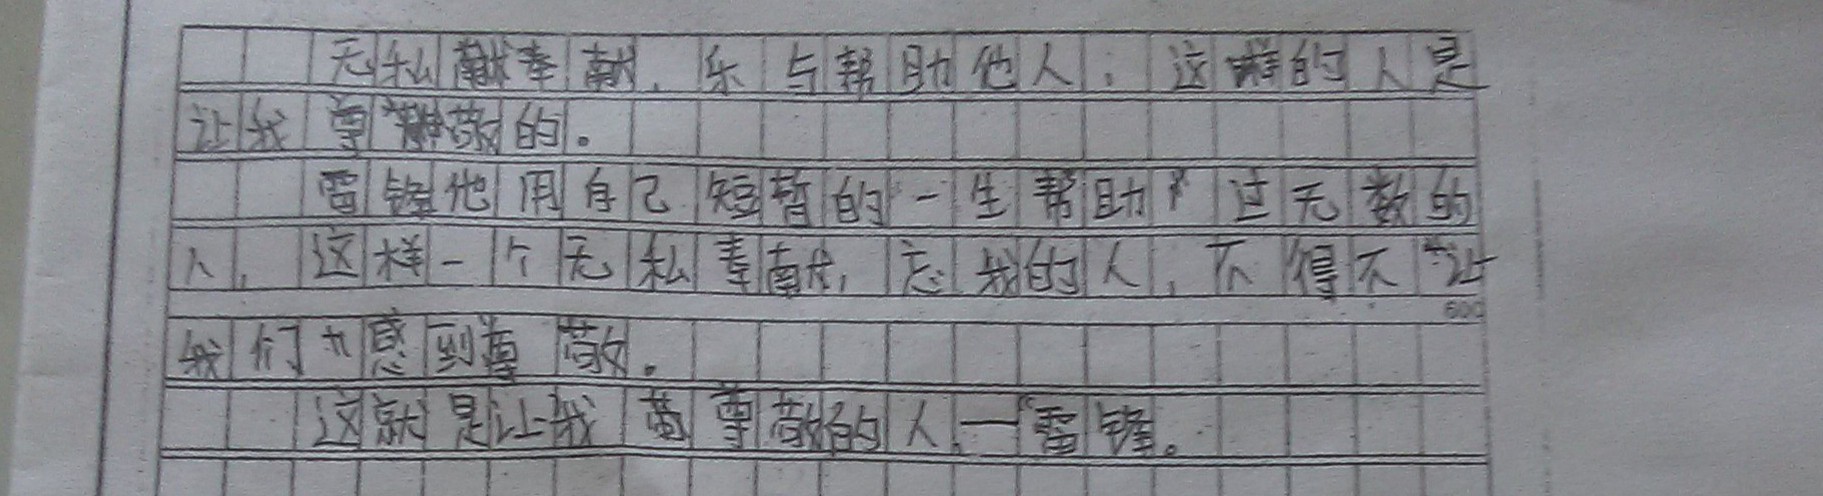 无私奉献，乐与帮助他人，这样的人是
让我尊敬的。
雷锋他用自己短暂的一生帮助过无数的
人，这样一个无私奉献，忘我的人，不得不让
600
我们感到尊敬。
这就是让我尊敬的人，—雷锋。